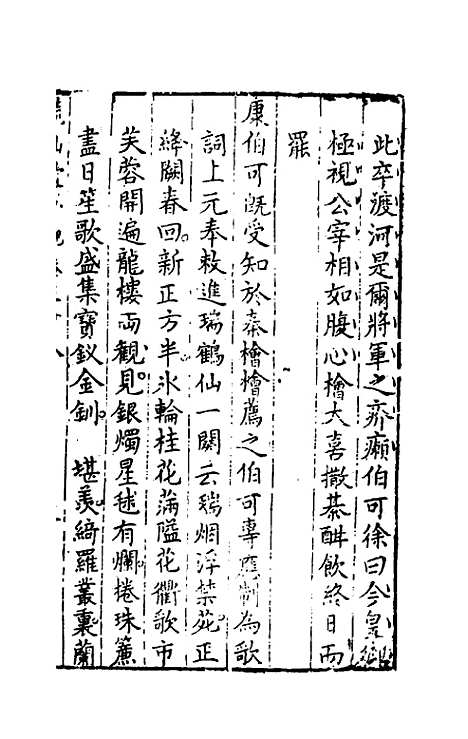 此卒渡河是爾將軍之疥癩伯可徐曰今皇
極視公宰相如腹心檜大喜撒棊酣飲終日而
罷
康伯可旣受知於秦檜檜薦之伯可專應制為歌
詞上元奉敕進瑞鶴仙一闋云瑞烟浮禁苑正
絳闕春回新正方半氷輪桂花滿隘花衢歌市
芙蓉開遍龍樓兩觀見銀燭星毬有爛捲珠簾
盡日笙歌盛集寶釵金釧 堪羡綺羅叢裏蘭